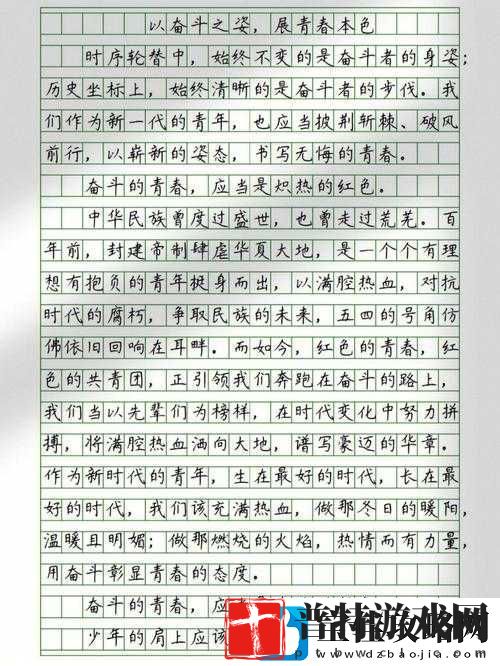 以奋斗之姿，展青春本色
时序轮替中，始终不变的是奋斗者的身姿；
历史坐标上，始终清晰的是奋斗者的步伐。我
们作为新一代的青年，也应当披荆斩棘、破风
前行，以崭新的姿态，书写无悔的青春。
奋斗的青春，应当是炽热的红色。
中华民族曾度过盛世，也曾走过荒芜。百
年前，封建帝制肆虐华夏大地，是一个个有理
想有抱负的青年挺身而出，以满腔热血，对抗
时代的腐朽，争取民族的未来，五四的号角仿
佛依旧回响在耳畔。而如今，红色的青春，红
色的共青团，正引领我们奔跑在奋斗的路上，
我们当以先辈们为榜样，在时代变化中努力拼
搏，将满腔热血洒向大地，谱写豪迈的华章。
作为新时代的青年，生在最好的时代，长在最
好的时代，我们该充满热血，做那冬日的暖阳，
温暖且明媚；做那燃烧的火焰，热情而有力量，
用奋斗彰显青春的态度。
奋斗的青春，应
少年的肩上应该
普特游戏网
www.dzbaojia.com